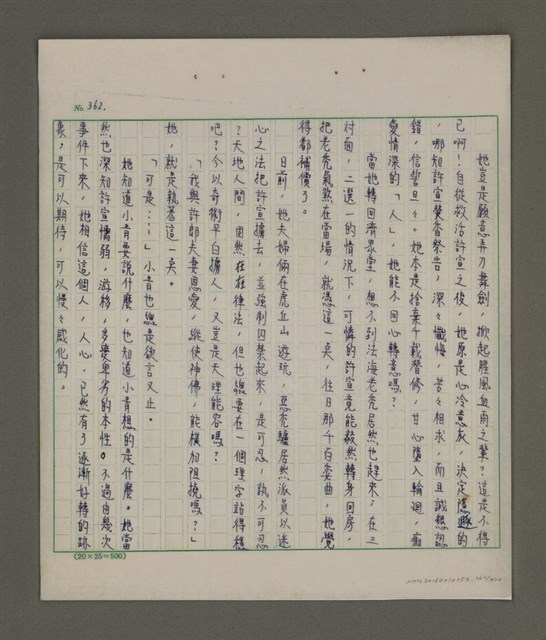 No. 362.
她豈是願意弄刀舞劍，掀起腥風血雨之輩？這是不得
已啊！自從救活許宣之後，她原是心冷意灰，決定隱遯的
，哪知許宣焚香祭告，深深懺悔，苦苦相求，而且誠懇認
錯，信誓旦旦。她本是捨棄千載潛修，甘心墮入輪迴，痴
愛情深的「人」，她能不回心轉意嗎？
當她轉回濟眾堂，想不到法海老禿居然也趕來，在三
對面，二選一的情況下，可憐的許宣竟能毅然轉身回房，
把老禿氣煞在當場，就憑這一奌，往日那千百委曲，她覺
得都補償了。
日前，她夫婦倆在虎丘山遊玩，惡禿驢居然派員以迷
心之法把許宣擄去，並強制囚禁起來，是可忍，孰不可忍
？天地人間，固然在在律法，但也總要在一個理字站得穩
吧？今以奇術平白擄人，又豈是天理能容嗎？
「我與許郎夫妻恩愛，縱使神佛，能橫加阻撓嗎？」
她，就是執著這一奌。
「可是⋯⋯」小青也總是欲言又止。
她知道小青要說什麼，也知道小青想的是什麼。她當
然也深知許宣懦弱，游移，多變卑劣的本性。不過由幾次
事件下來，她相信這個人，人心，已然有了逐漸好轉的跡
象，是可以期待，可以慢慢感化的。
(20×25=500)